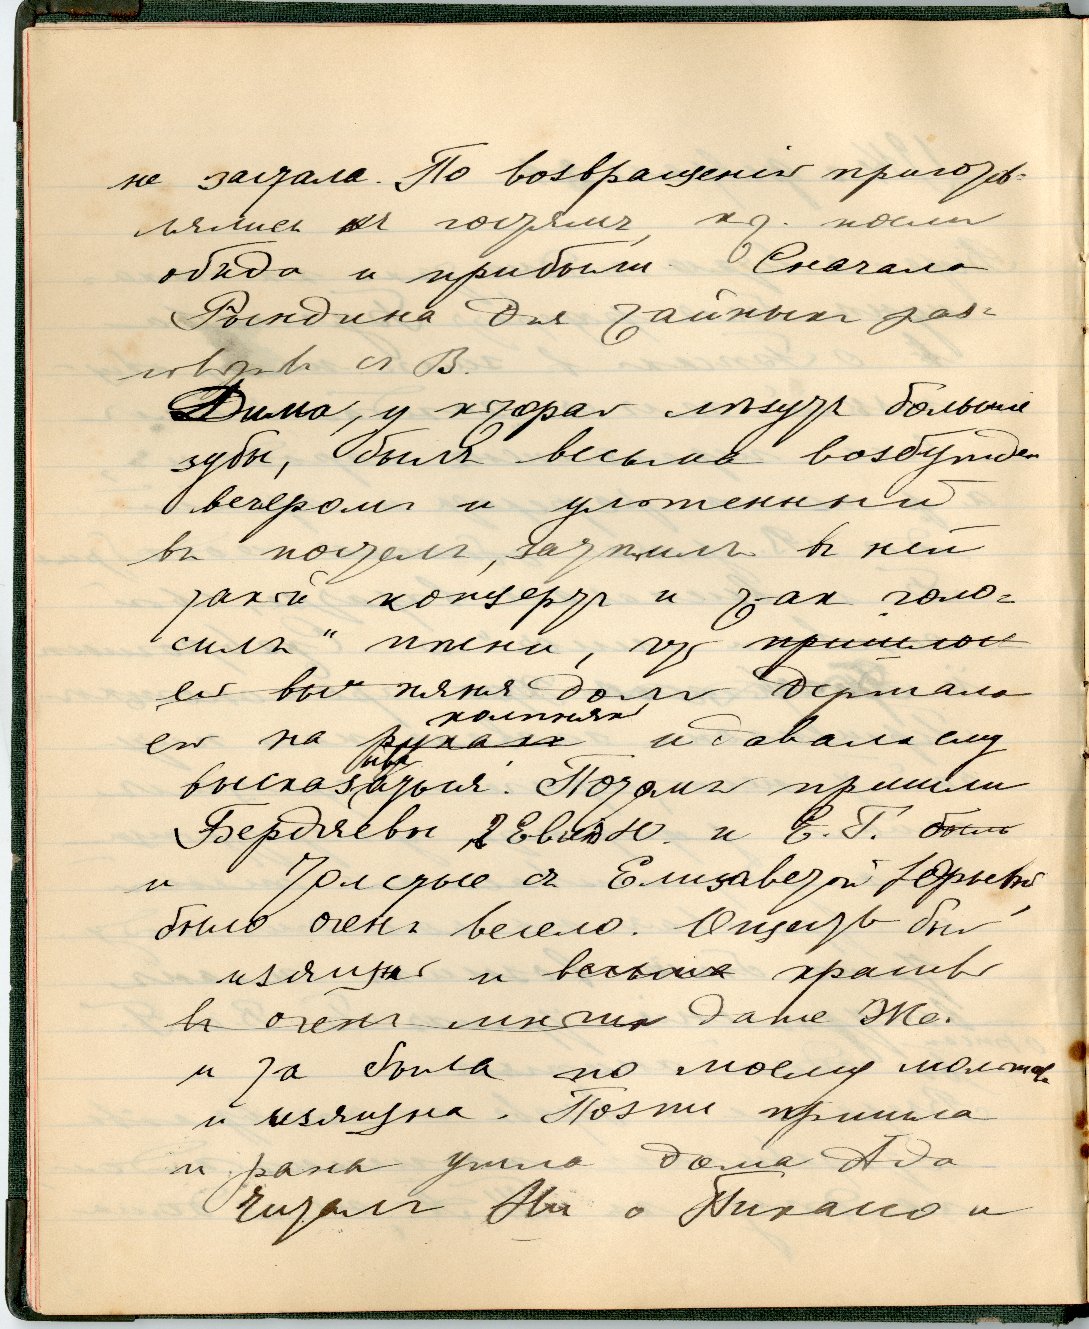 не застала. По возвращенiи приготов-
лялись къ гостямъ, кт. после
обѣда и прибыли Сначала
Рындина для тайныхъ раз-
говоровъ съ В.
Дима, у котораго лѣзутъ большие
зубы, былъ весьма возбужден
вечеромъ и уложенный
въ постель, закатилъ въ ней
такой концертъ и такъ голо-
силъ " няни, что пришлось
его няня долго держала
его на руках коленях и давала ему
высказаться. Потомъ пришли
Бердяевы 2 Евг Ю. и Е. Г. былъ
и Толстые съ Елизаветой Юрьевной
было очень весело. Общество был
изящно и весьма красиво
въ очень многих даже Же.
и та была по моему моложе
и изящна. Позже пришла
и рано ушла дома Ада
Читалъ о Пикассо и